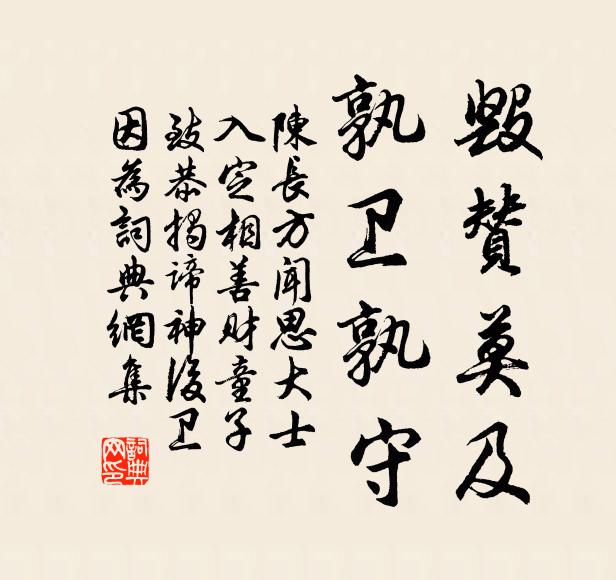 毁贊莫及
孰卫孰守
陳長方闻思大士
入定相善财童子
致恭揭諦神後卫
因為詞典網集
詞典
网印